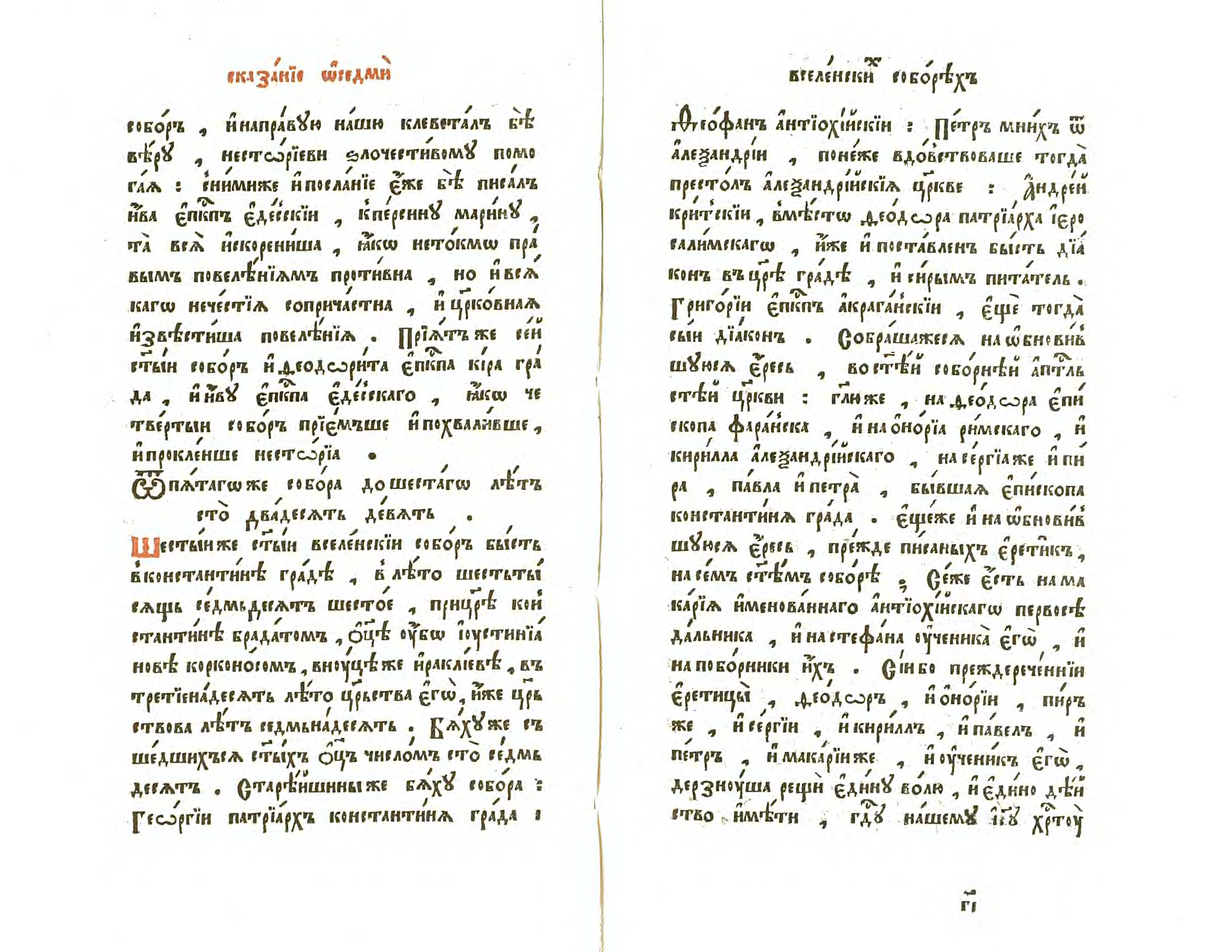 сказа́нїе ѡ҆седмѝ
собо́ръ , и҆напра́вꙋю на́шю клевета́лъ бѣ̀
вѣ́рꙋ , несто́рїеви ѕлочести́вомꙋ помо
га́ѧ : сни́миже и҆посла́нїе є҆́же бѣ̀ писа́лъ
и҆́ва є҆пⷭ҇кпъ є҆де́сскїи , кпе́рсинꙋ мари́нꙋ ,
та̀ всѧ̀ и҆скорени́ша , ꙗ҆́кѡ нето́кмѡ пра́
вымъ повелѣ́нїѧмъ проти́вна , но и҆всѧ́
кагѡ нече́стїѧ соприча́стна , и҆ цр҃ко́внаѧ
и҆звѣсти́ша повелѣ́нїѧ . Прїѧ́тъже се́й
ст҃ы́и собо́ръ и҆ѳеодѡри́та є҆пⷭ҇кпа кі́ра гра́
да , и҆и҆́вꙋ є҆пⷭ҇кпа є҆де́сскаго , ꙗ҆́кѡ че
тве́ртыи собо́ръ прїе́мъше и҆похвали́вше ,
и҆прокле́нше несто́рїа .
Ѿпѧ́тагѡже собо́ра дошеста́гѡ лѣ́тъ
сто̀ два́десѧть де́вѧть .
Шесты́иже ст҃ы́и вселе́нскїи собо́ръ бы́сть
вконстанти́нѣ гра́дѣ , в лѣ́то шестьты́
сѧщь се́дмьдесѧтъ шесто́е , прицр҃ѣ ко́н
станти́нѣ брада́томъ , ѻ҆ц҃ѣ оу҆́бѡ і҆оустинїа́
новѣ корконо́сомъ , вноу́цѣже и҆ра́клїевѣ , въ
третїена́десѧть лѣ́то цр҃ьства є҆гѡ̀ , и҆́же цр҃ь
ствова лѣ́тъ седмьна́десѧть . Бѧ́хꙋже съ
ше́дшихъсѧ ст҃ы́хъ ѻ҆ц҃ъ число́мъ сто̀ се́дмь
десѧ́тъ . Старѣ́йшиныже бѧ́хꙋ собо́ра :
Геѡ́ргїи патрїа́рхъ константи́нѧ гра́да :
вселе́нскиⷯ собо́рѣхъ
Ѳео́фанъ а҆нтїохі́йскїи : Пе́тръ мни́хъ ѿ
а҆леѯандрі́и , поне́же вдо́вствоваше тогда̀
престо́лъ а҆леѯандрі́йскїѧ цр҃кве : А҆ндре́й
кри́тскїи , вмѣ́стѡ ѳеодѡ́ра патрїа́рха і҆еро
сали́мскагѡ , и҆́же и҆поста́вленъ бы́сть дїа́
конъ въцр҃ѣ гра́дѣ , и҆си́рымъ пита́тель .
Григо́рїи є҆пⷭ҇кпъ а҆крага́нскїи , є҆щѐ тогда̀
сы́и дїа́кон . Собра́шажесѧ наѡ҆бнови́в
шꙋюсѧ є҆́ресь , востѣ́й собо́рнѣй а҆пⷭ҇тль
стѣ́й цр҃кви : гл҃юже , наѳеодѡ́ра є҆пи́
скопа фара́нска , и҆наѻ҆но́рїа ри́мскаго , и҆
кири́лла а҆леѯандрі́йскаго , насе́ргїаже и҆пи́
ра , па́вла и҆петра̀ , бы́вшаѧ є҆пископа
константи́нѧ гра́да . є҆ще́же и҆наѡ҆бнови́в
шꙋюсѧ є҆́ресь , пре́жде пи́саныхъ є҆рети́къ ,
насе́мъ ст҃ѣ́мъ собо́рѣ ; Се́же є҆́сть нама
ка́рїѧ и҆менова́ннаго а҆нтїохі́йскагѡ первосѣ
да́льника , и҆настефа́на оу҆ченика̀ є҆гѡ̀ , и҆
напобо́рники и҆́хъ . Сі́ибо преждерече́ннїи
є҆ретицы̀ , ѳео́дѡръ , и҆ѻ҆но́рїи , пи́ръ
же , и҆се́ргїи , и҆кири́ллъ , и҆па́велъ , и҆
пе́тръ , и҆мака́рїиже , и҆оу҆чени́къ є҆гѡ̀ ,
дерзноу́ша рещѝ є҆ди́нꙋ во́лю , и҆є҆ди́но дѣ́й
ство и҆мѣ́ти , гдⷭ҇ꙋ на́шемꙋ і҆с҃ꙋ хрⷭ҇тоу̀
г҃і